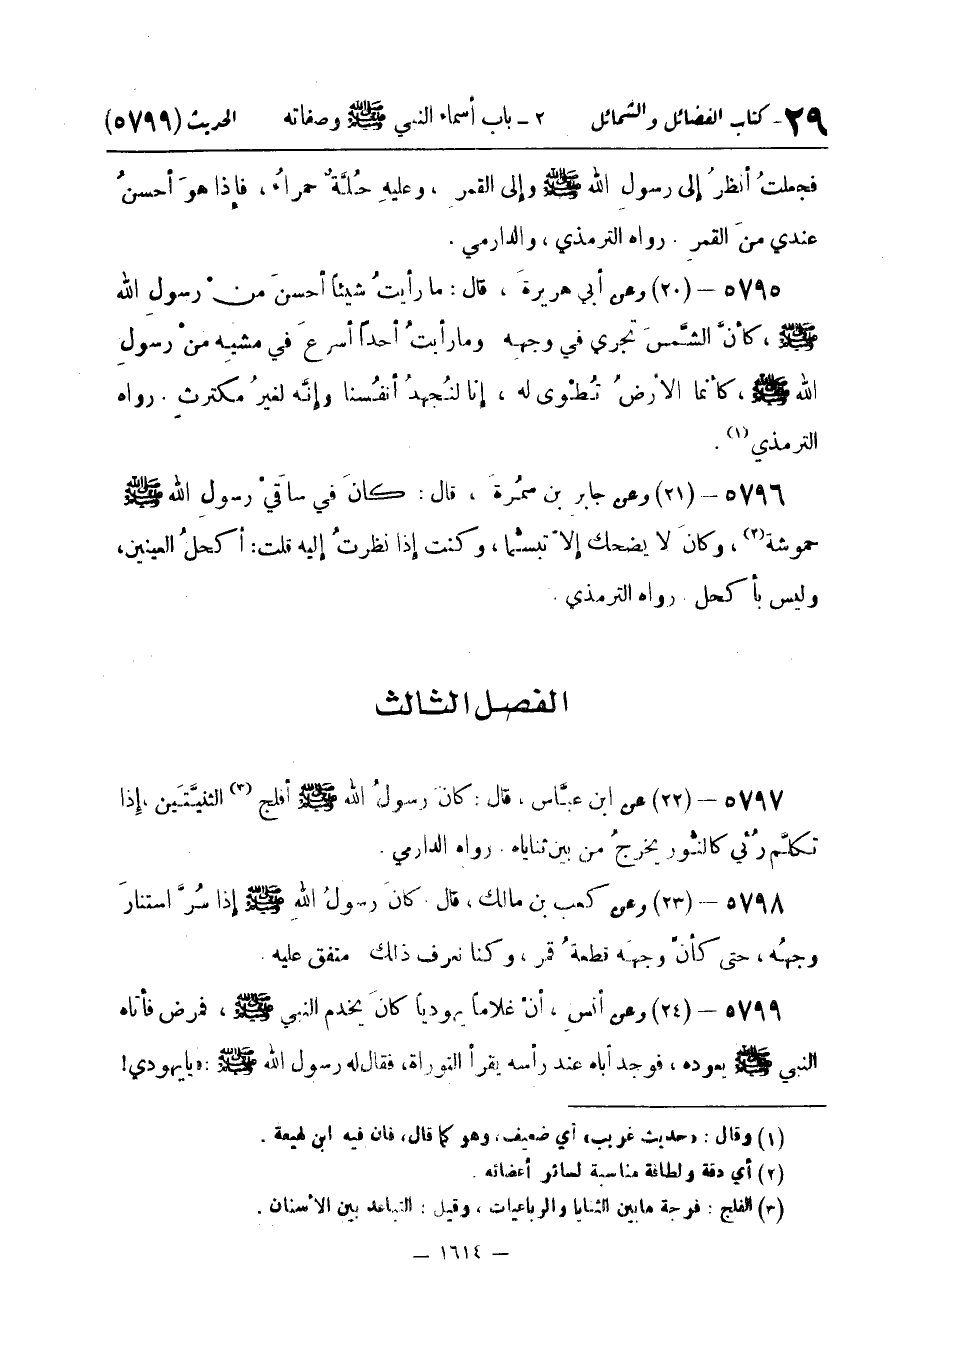 ٢٩ـ كتاب الفضائل والشمائل ٢ ـ باب أسماء النبي ﷺ وصفاته الحديث (٥٧٩٩)
فجعلتُ أنظرُ إلى رسولِ الله ﷺ وإلى القمرِ ، وعليهِ حُلَّةٌ حمراءُ ، فإذا هوَ أحسنُ
عندي منَ القمرِ . رواه الترمذي ، والدارمي .
٥٧٩٥ – (٢٠) وعن أبي هريرةَ ، قال : ما رأيتُ شيئاً أحسنَ منْ رسولِ الله
ﷺ ، كأنَّ الشَّمسَ تجري في وجههِ وما رأيتُ أحداً أسرعَ في مشيهِ منْ رسولِ
الله ﷺ ، كأنما الأرضُ تُطْوى له ، إنا لنُجهدُ أنفُسنا وإنَّه لغيرُ مكترثٍ . رواه
الترمذي(١) .
٥٧٩٦ – (٢١) وعن جابر بن سمُرةَ ، قال : كانَ في ساقَيْ رسولِ الله ﷺ
حموشة(٢) ، وكانَ لا يضحك إلاَّ تبسُّماً ، وكنت إذا نظرتُ إليه قلت : أكحلُ العينين ،
وليس بأكحل . رواه الترمذي .
الفصل الثالث
٥٧٩٧ – (٢٢) عن ابن عبَّاس ، قال : كانَ رسولُ الله ﷺ أفلج(٣) الثنيَّتَين ، إذا
تكلَّم رُئي كالنُّور يخرجُ من بين ثناياه . رواه الدارمي .
٥٧٩٨ – (٢٣) وعن كعب بن مالك ، قال . كانَ رسولُ اللهِ ﷺ إذا سُرَّ استنارَ
وجهُه ، حتى كأنَّ وجهَه قطعةُ قمر ، وكنا نعرف ذلك متفق عليه .
٥٧٩٩ – (٢٤) وعن أنسٍ ، أنَّ غلاماً يهودياً كانَ يخدم النبي ﷺ ، فمرض فأتاه
النبي ﷺ يعوده ، فوجد أباه عند رأسه يقرأ التوراة ، فقال له رسول الله ﷺ : «يا يهودي !
(١) وقال : «حديث غريب» أي ضعيف ، وهو كما قال ، فان فيه ابن لهيعة .
(٢) أي دقة ولطافة مناسبة لسائر أعضائه .
(٣) الفلج : فرجة مابين الثنايا والرباعيات ، وقيل : التباعد بين الأسنان .
– ١٦١٤ –